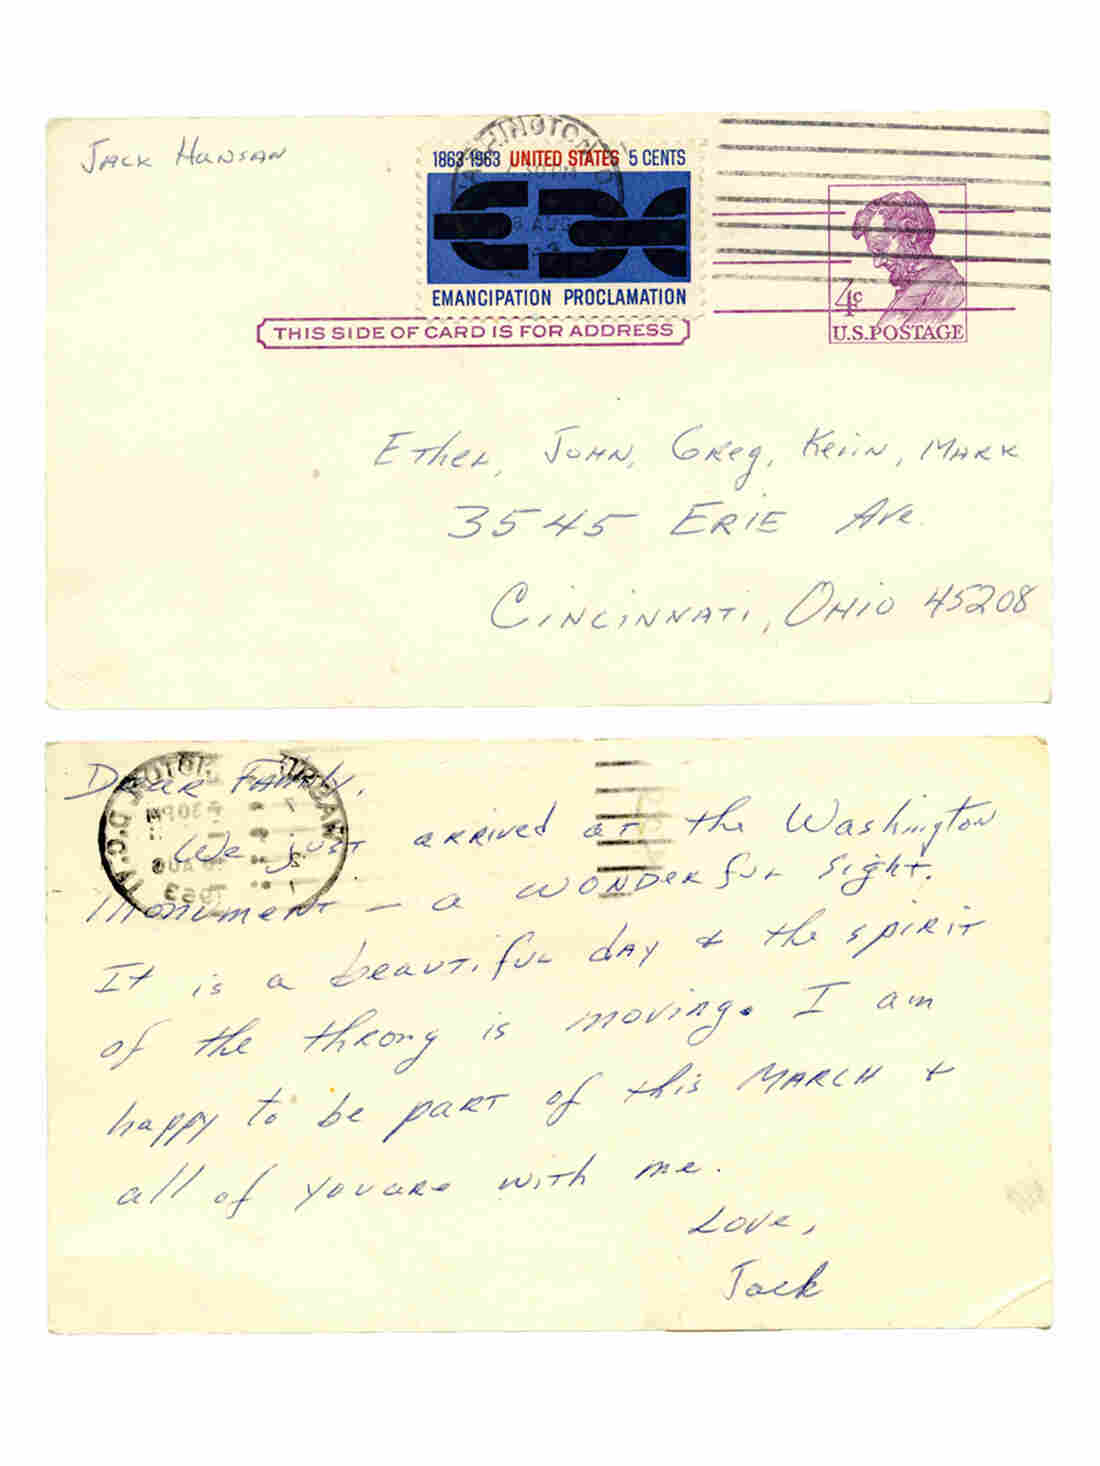 Jack Hansan
1863-1963 UNITED STATES 5 CENTS
EMANCIPATION PROCLAMATION
4c
U.S. POSTAGE
THIS SIDE OF CARD IS FOR ADDRESS
Ethel, John, Greg, Kevin, Mark
3545 Erie Ave.
Cincinnati, Ohio 45208
Dear Family,
We just arrived at the Washington
Monument - a wonderful sight.
It is a beautiful day & the spirit
of the throng is moving. I am
happy to be part of this MARCH &
all of you are with me.
Love,
Jack